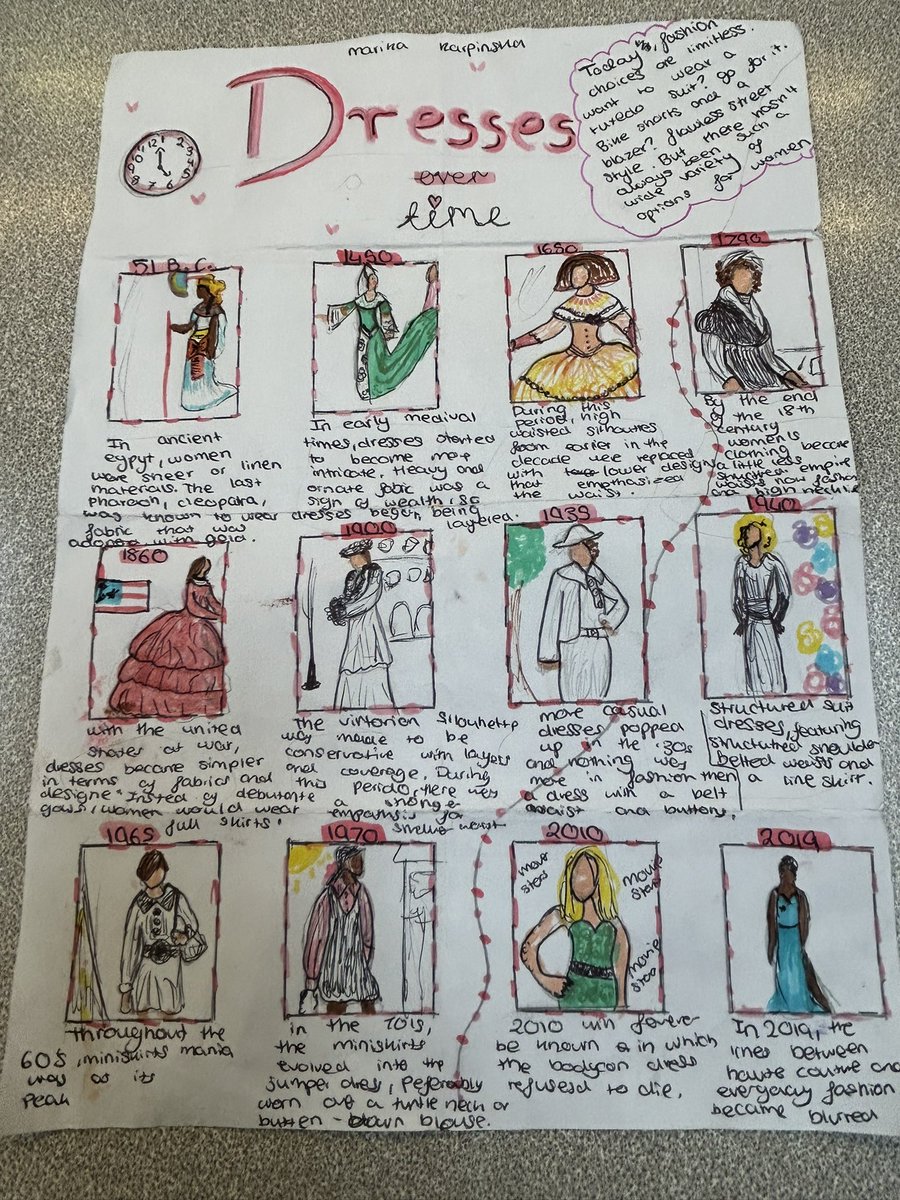 marika Karpinska
Dresses
over
time
12 1 2 3 4 5 6 7 8 9 10 11
Today, fashion
choices are limitless.
want to wear a
tuxedo suit? go for it.
Bike shorts and a
blazer? flawless street
style. But there hasn't
always been such a
wide variety of
options for women
51 B.C.
In ancient
eypyt, women
wore sheer or linen
materials. The last
pharaoh, cleopatra,
was known to wear
fabric that was
adopted with gold.
1450
In early medival
times, dresses started
to become more
intricate. Heavy and
ornate fabic was a
sign of wealth, so
dresses began being
layered.
1650
During this
period, high
waisted silhouttes
from earlier in the
decade were replaced
with lower design
that emphasized
the waist.
1790
By the end
of the 18th
century
women's
clothing became
a little less
structured empire
waists now fashion
and high necklin
1860
with the united
states at war,
dresses became simpler
in terms of fabrics and
designe. Insted of debutante
gows, women would wear
full skirts.
1900
The victorian silouhette
was made to be
conservative with layers
and coverage. During
this perido, there was
a stronge
empathsis for
waist
1935
more casual
dresses popped
up in the '30s
and nothing was
more in fashion then
a dress with a belt
waist and buttons.
1940
Structured suit
dresses, featuring
structuted shoulder
belted waists and
a line skirt.
1965
throughout the
60's, miniskirts mania
was at its
peak
1970
in the 70's,
the miniskirts
evolved into the
jumper dress, Peferably
worn over a turtle neck or
button-down blouse.
2010
movie
stars
movie
stars
movie
star
2010 will forever
be known as in which
the bodycon dress
refused to die.
2019
In 2019, the
lines between
haute couture and
everyday fashion
became blurred